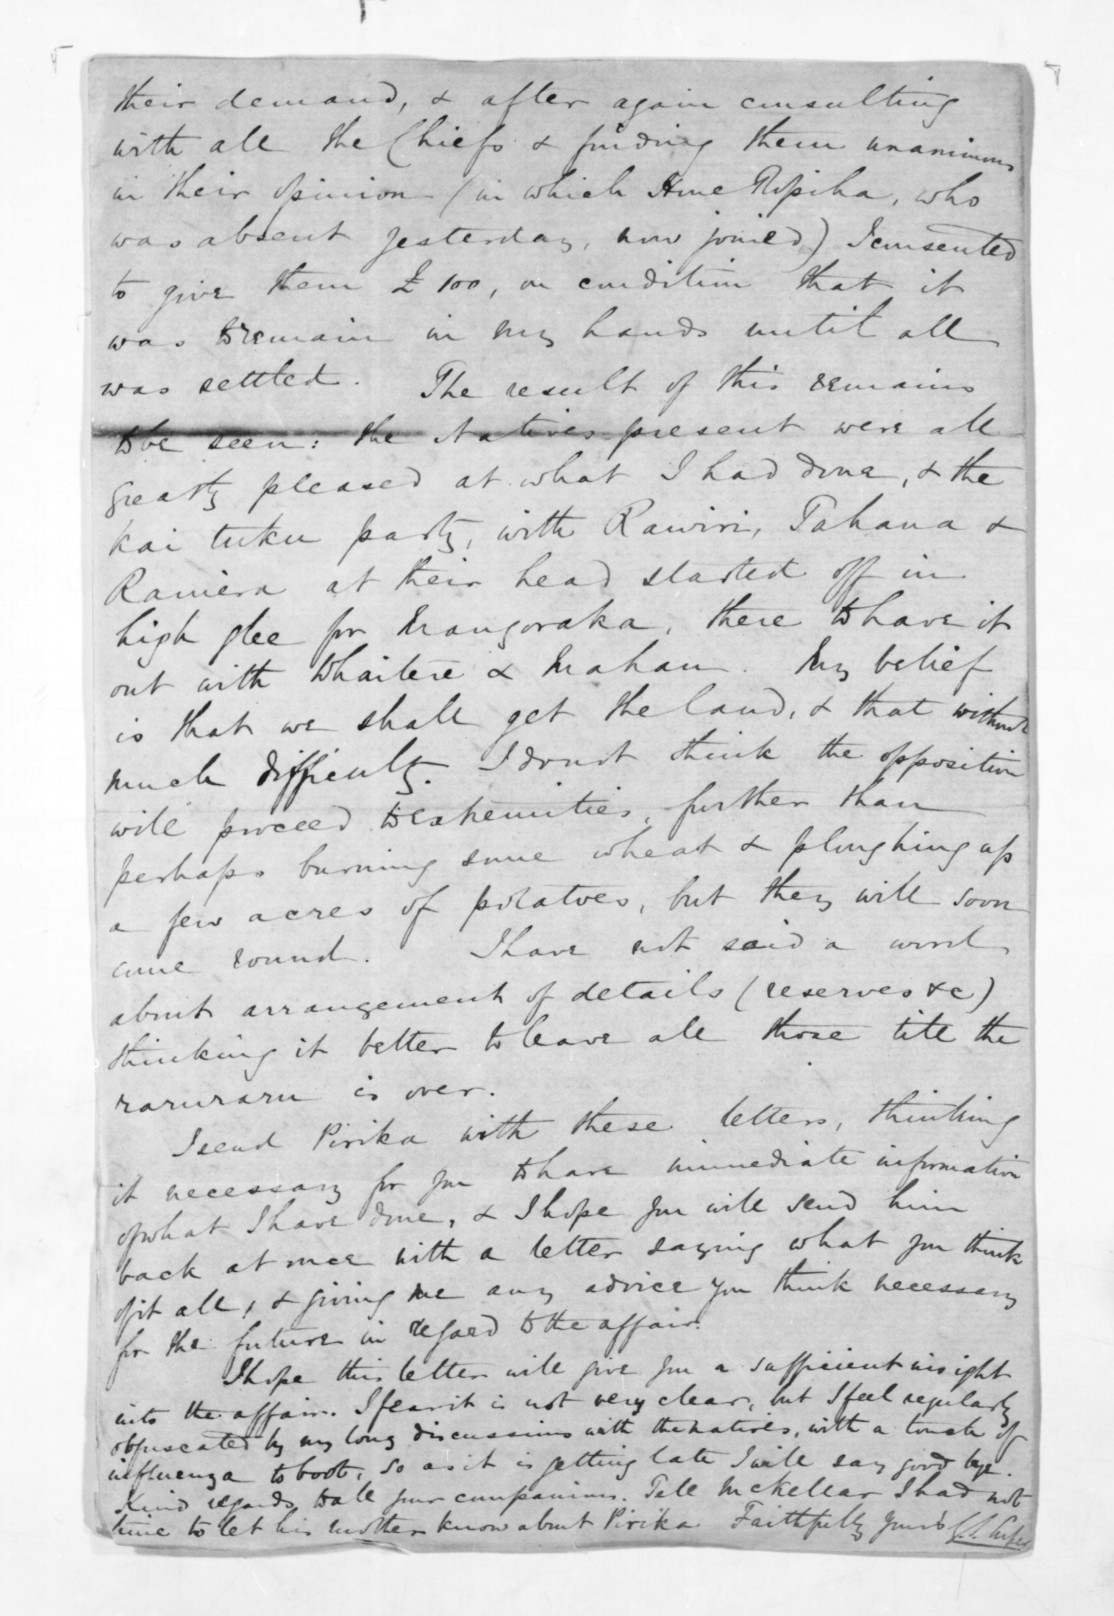 their demand, & after again consulting
with all the Chiefs & finding them unanimous
in their opinion (in which Hme Ropiha, who
was absent yesterday, now joined) I consented
to give them £100, on condition that it
was to remain in my hands until all
was settled. The result of this remains
to be seen: the Natives present were all
greatly pleased at what I had done, & the
kai tuku party, with Rawiri, Tahana &
Ramiera at their head started off in
high glee for Mangoraka, there to have it
out with Whaitere & Mahau. My belief
is that we shall get the land, & that without
much difficulty. I do not think the opposition
will proceed to extremities, further than
perhaps burning some wheat & ploughing up
a few acres of potatoes, but they will soon
come round. I have not said a word
about arrangement of details (reserves &c)
thinking it better to leave all those till the
raruraru is over.
I send Pirika with these letters, thinking
it necessary for you to have immediate information
of what I have done, & I hope you will send him
back at once with a letter saying what you think
of it all, & giving me any advice you think necessary
for the future in regard to the affair.
I hope this letter will give you a sufficient insight
into the affair. I fear it is not very clear, but I feel regularly
obfuscated by my long discussions with the natives, with a touch of
influenza to boot, so as it is getting late I will say good bye.
Kind regards to all your companions. Tell McKellar I had not
time to let his mother know about Pirika Faithfully yours